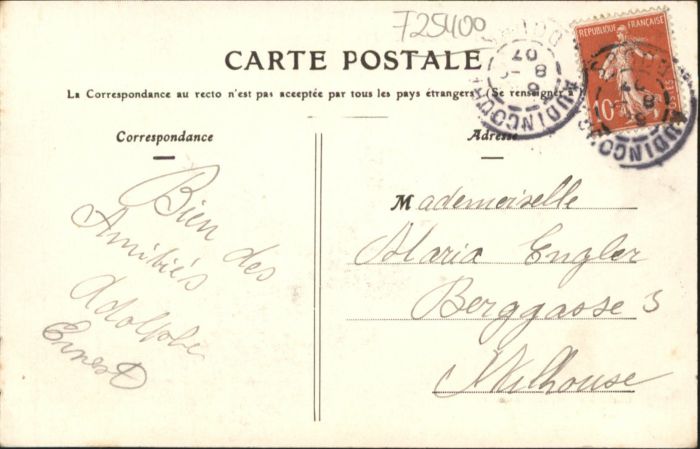 F25400
CARTE POSTALE
La Correspondance au recto n'est pas acceptée par tous les pays étrangers (Se renseigner à
Correspondance
Adresse
Bien des
Amitiés
Adolphe
Ernest
Mademoiselle
Maria Engler
Berggasse 3
Mulhouse
REPUBLIQUE FRANÇAISE
10
AUDINCOURT
AUDINCOURT